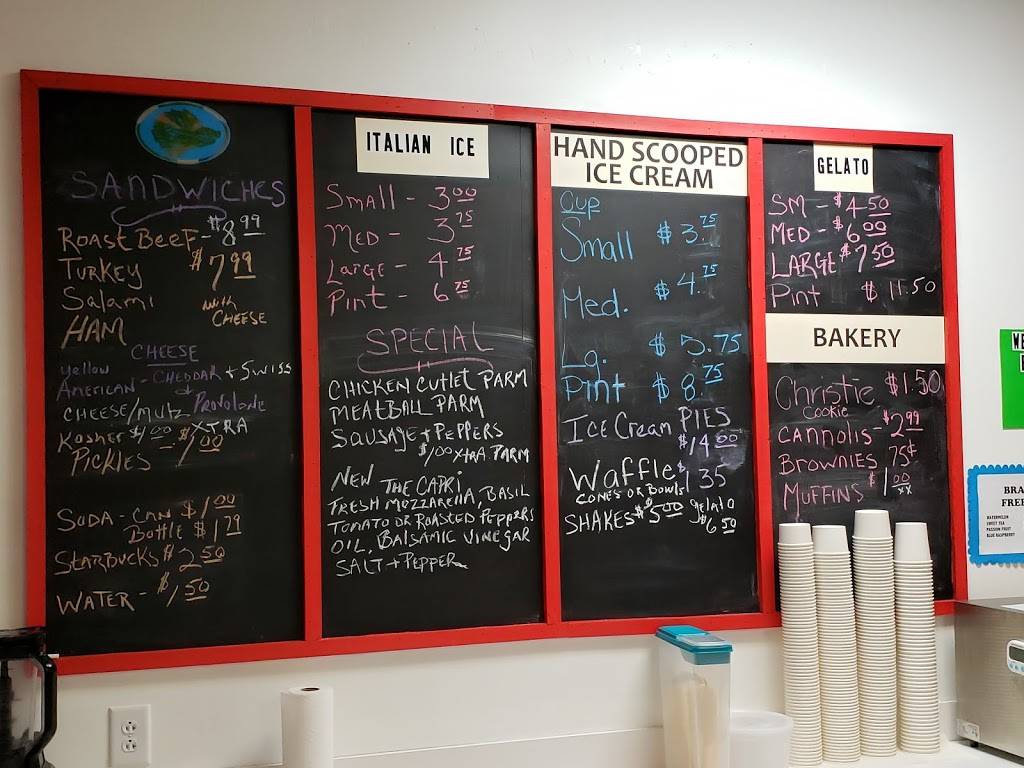 SANDWICHES
ROAST BEEF - $8.99
TURKEY $7.99
Salami
HAM
with CHEESE
CHEESE
yellow
AMERICAN - CHEDDAR + SWISS
CHEESE/MUTZ or PROVOLONE
Kosher $1.00 $1.00 XTRA
PICKLES
SODA - CAN $1.00
Bottle $1.79
STARBUCKS $2.50
WATER - $1.50
ITALIAN ICE
Small - 3.00
MED - 3.75
Large - 4.75
Pint - 6.75
SPECIAL
CHICKEN CUTLET PARM
MEATBALL PARM
SAUSAGE + PEPPERS
$1.00 XTRA PARM
NEW THE CAPRI
FRESH MOZZARELLA, BASIL
TOMATO OR ROASTED PEPPERS
OIL, BALSAMIC VINEGAR
SALT + PEPPER
HAND SCOOPED
ICE CREAM
Cup
Small $3.75
Med. $4.75
Lg. $5.75
Pint $8.75
Ice Cream PIES
$14.00
Waffle $1.35
CONES OR BOWLS
SHAKES $5.00 gelato $6.50
GELATO
SM - $4.50
MED - $6.00
LARGE $7.50
Pint $11.50
BAKERY
Christie $1.50
Cookie
CANNOLIS - $2.99
BROWNIES 75¢
MUFFINS $1.00
xx
BRA
FREE
WATERMELON
SWEET TEA
PASSION FRUIT
BLUE RASPBERRY